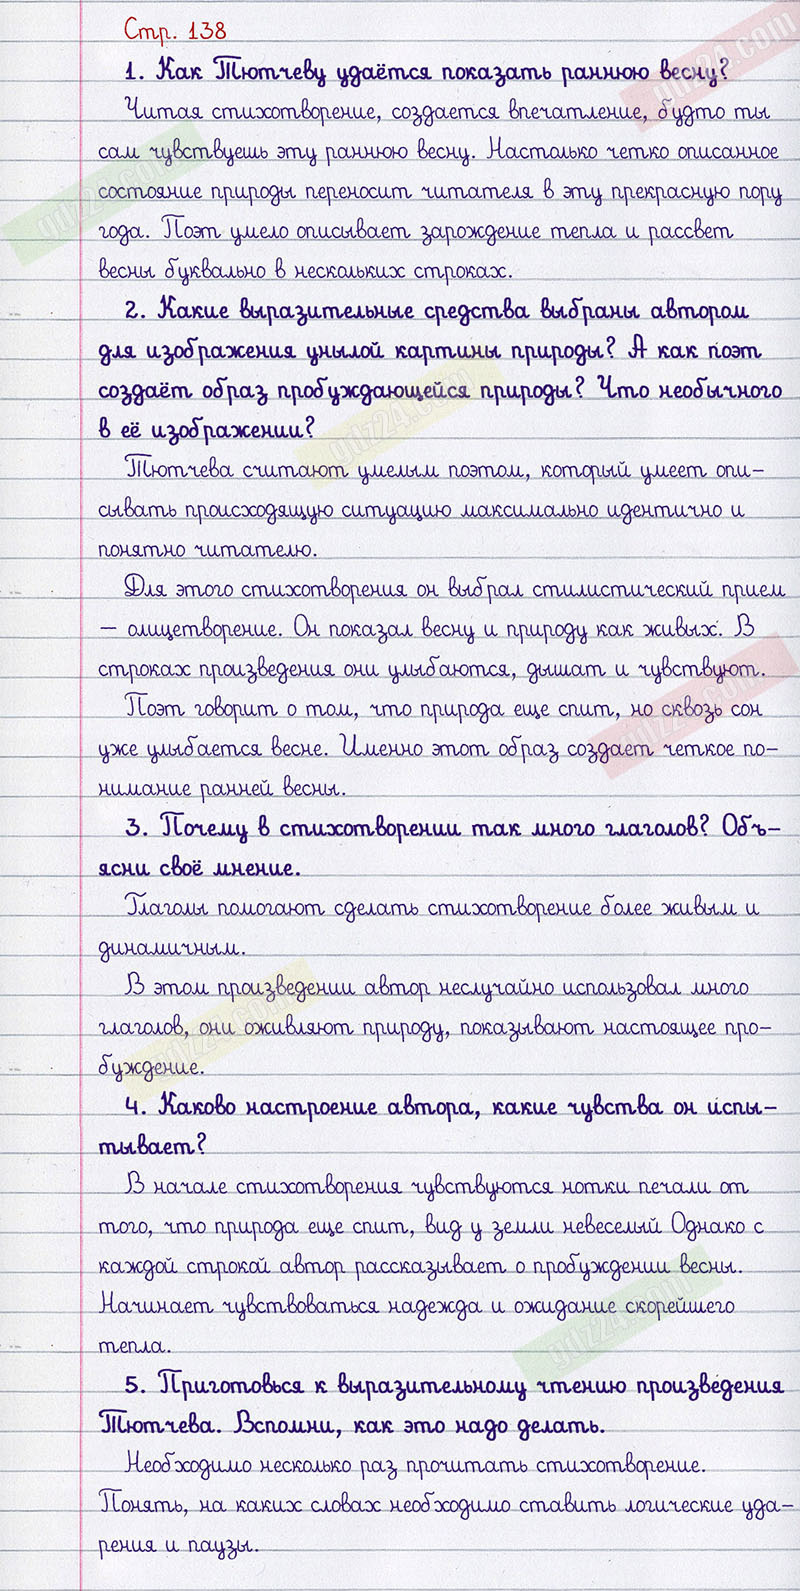 Стр. 138
1. Как Тютчеву удаётся показать раннюю весну?
Читая стихотворение, создается впечатление, будто ты
сам чувствуешь эту раннюю весну. Настолько четко описанное
состояние природы переносит читателя в эту прекрасную пору
года. Поэт умело описывает зарождение тепла и рассвет
весны буквально в нескольких строках.
2. Какие выразительные средства выбраны автором
для изображения унылой картины природы? А как поэт
создаёт образ пробуждающейся природы? Что необычного
в её изображении?
Тютчева считают умелым поэтом, который умеет опи-
сывать происходящую ситуацию максимально идентично и
понятно читателю.
Для этого стихотворения он выбрал стилистический прием
– олицетворение. Он показал весну и природу как живых. В
строках произведения они улыбаются, дышат и чувствуют.
Поэт говорит о том, что природа еще спит, но сквозь сон
уже улыбается весне. Именно этот образ создает четкое по-
нимание ранней весны.
3. Почему в стихотворении так много глаголов? Объ-
ясни своё мнение.
Глаголы помогают сделать стихотворение более живым и
динамичным.
В этом произведении автор неслучайно использовал много
глаголов, они оживляют природу, показывают настоящее про-
буждение.
4. Каково настроение автора, какие чувства он испы-
тывает?
В начале стихотворения чувствуются нотки печали от
того, что природа еще спит, вид у земли невеселый Однако с
каждой строкой автор рассказывает о пробуждении весны.
Начинает чувствоваться надежда и ожидание скорейшего
тепла.
5. Приготовься к выразительному чтению произведения
Тютчева. Вспомни, как это надо делать.
Необходимо несколько раз прочитать стихотворение.
Понять, на каких словах необходимо ставить логические уда-
рения и паузы.
gdz24.com
gdz24.com
gdz24.com
gdz24.com
gdz24.com
gdz24.com